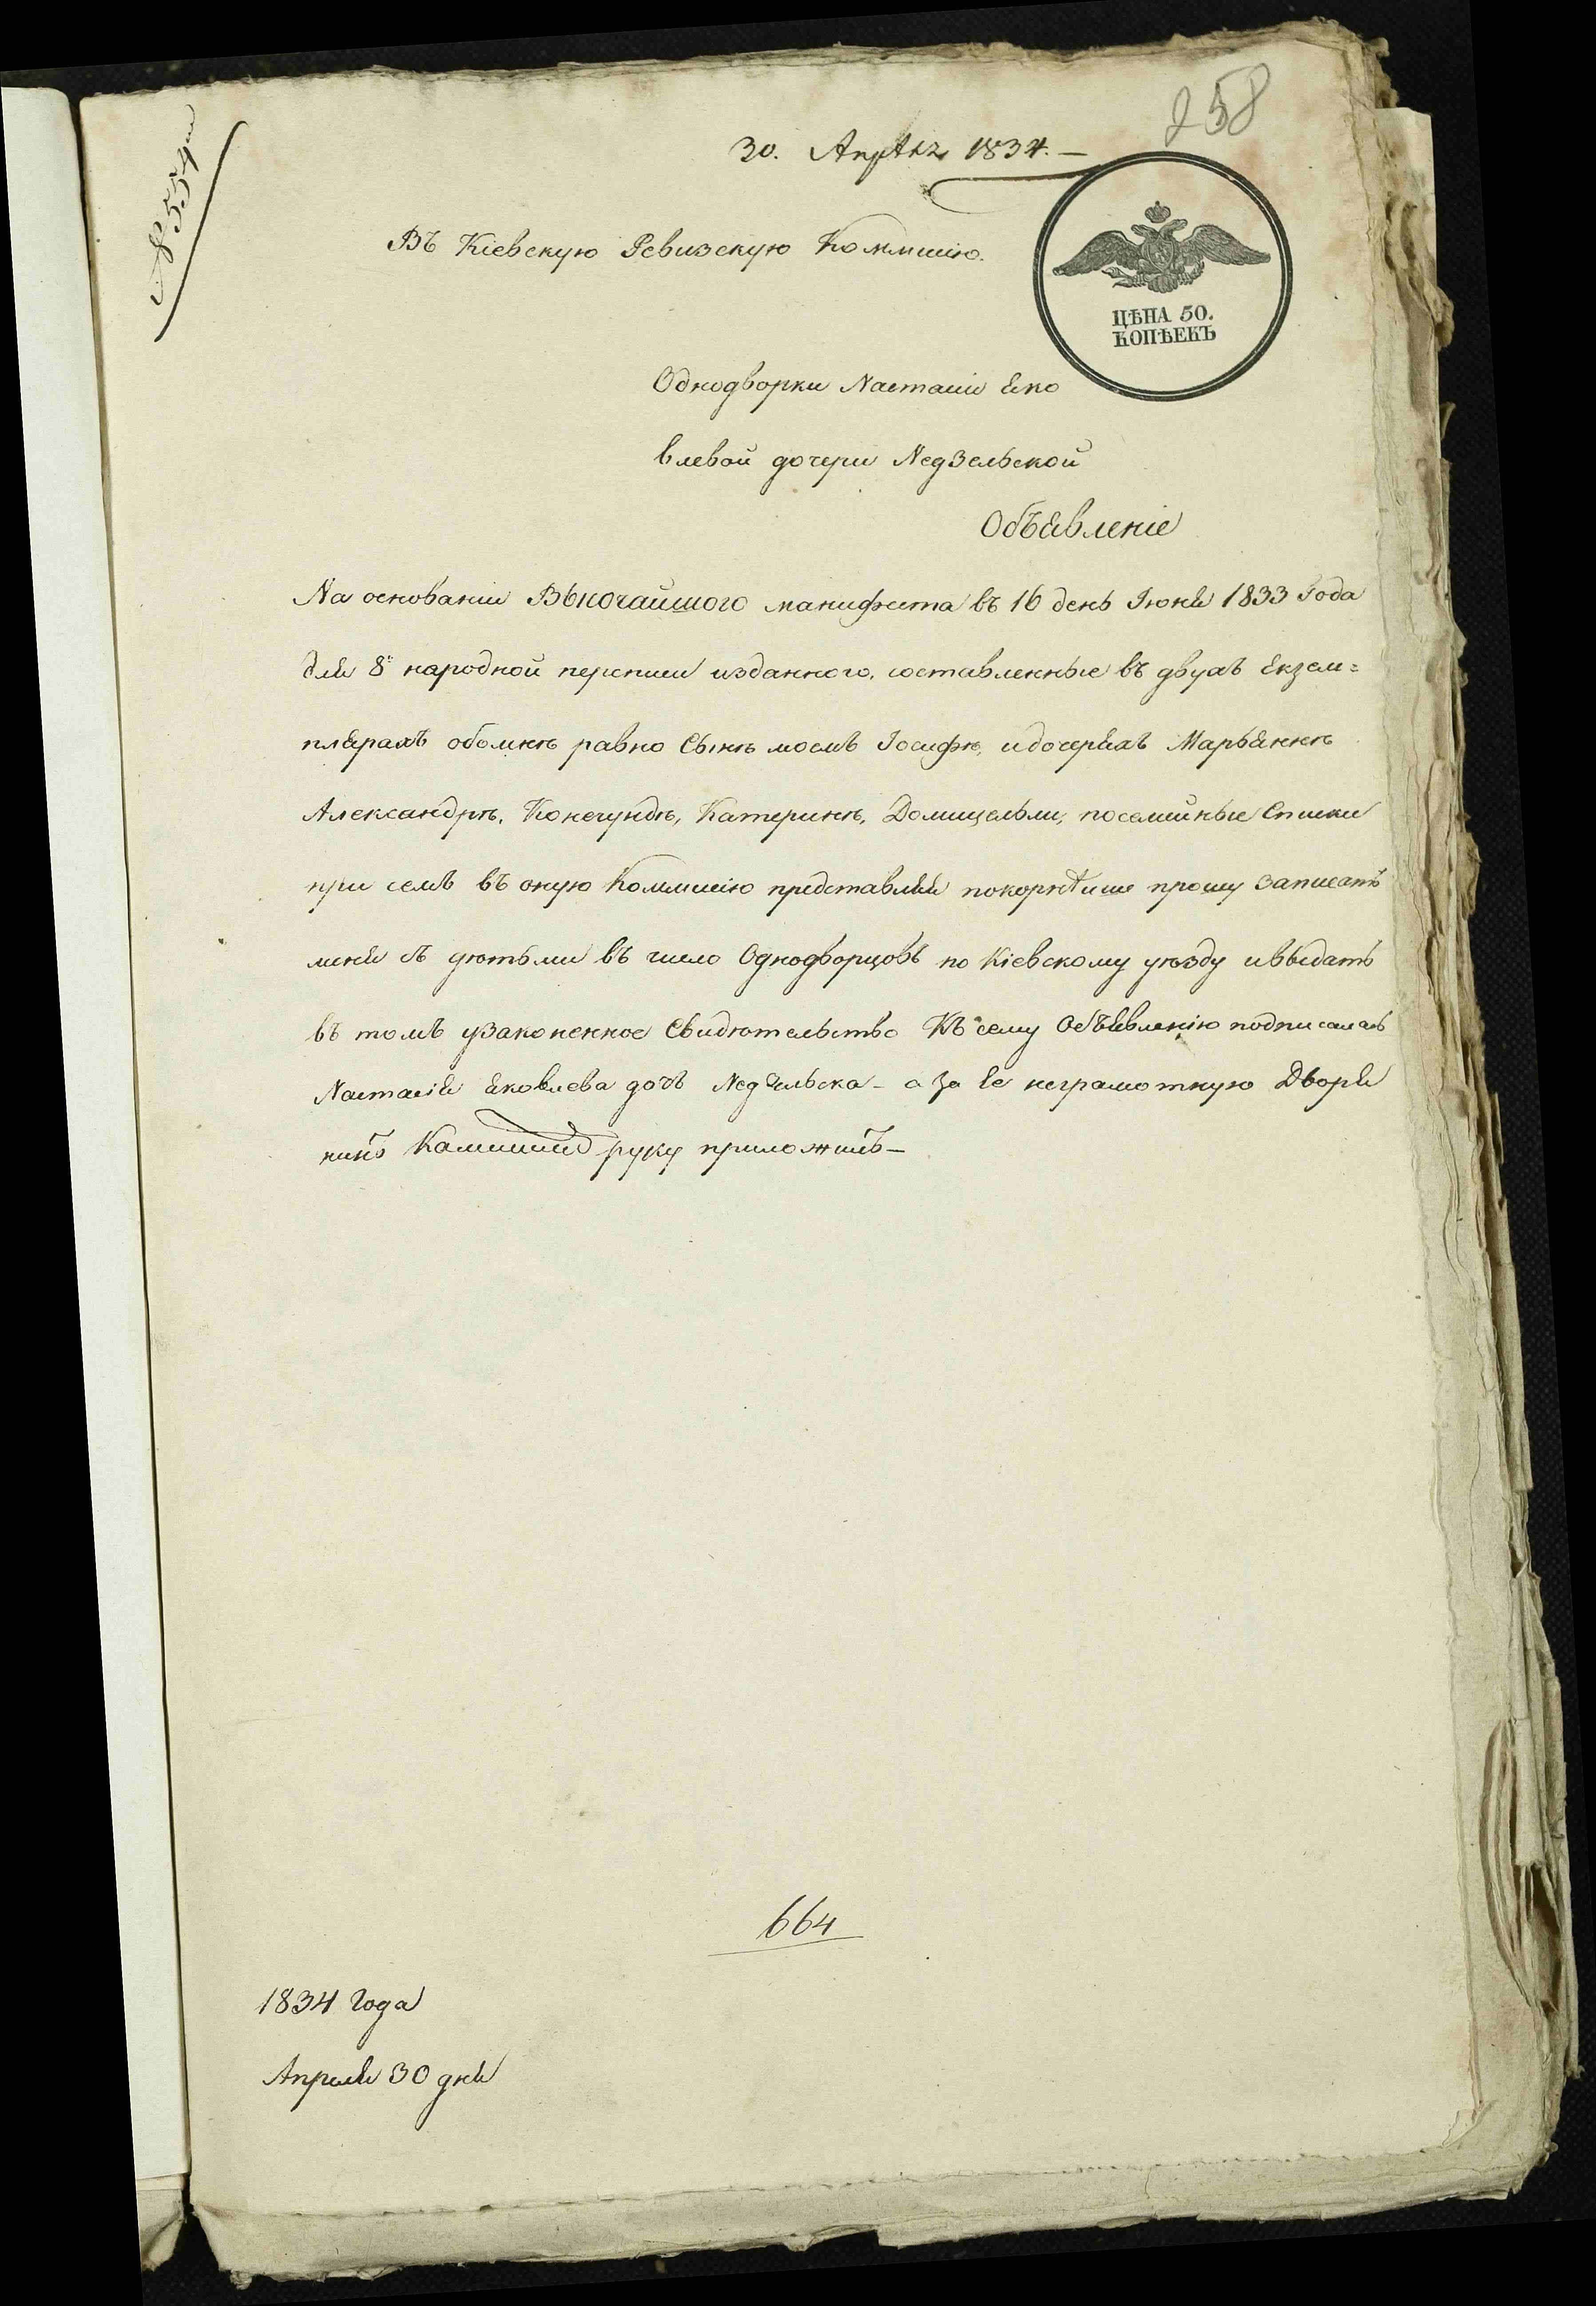 258
№ 554
30. Апрѣля 1834. —
Въ Кіевскую Ревизскую Коммисію.
ЦѢНА 50.
КОПѢЕКЪ
Однодворки Настасіи Яко
влевой дочери Недзельской
Объявленіе
На основаніи Высочайшого манифеста въ 16 день Іюня 1833 Года
для 8й народной переписи изданного, составленные въ двухъ Екзем=
плярахъ обомнѣ равно Сынѣ моемъ Іосифѣ, идочеряхъ Марьяннѣ
Александрѣ, Конегундѣ, Катеринѣ, Домицельли, посемийные Списки
при семъ въ оную Коммисію представляя покорнѣише прошу Записать
меня съ дѣтьми въ число Однодворцовъ по Кіевскому уѣзду ивыдать
въ томъ узаконенное Свидѣтельство Къ сему Объявленію подписалась
Настасія Яковлева дочь Недзельска – а За Ее неграмотную Дворя
нинъ руку приложилъ –
664
1834 Года
Апреля 30 дня